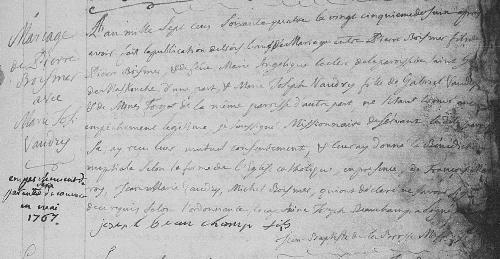 Mariage
de Pierre
Boismer
avec
Marie Jos.
Vaudry
en mai
1767.
L'an mille sept cens soixante quatre le vingt cinquieme de juin après
avoir fait la publication de trois bans de Mariage entre Pierre Boismer fils de
Pierre Boismer, & de feue Marie Angelique de la paroisse
de d'une part, & Marie Joseph Vaudry fille de Gabriel Vaudry
& de Forget de la même paroisse d'autre part, ne s'étant trouvé aucun
empêchement legitime, je soussigné Missionnaire desservant la dite
ay reçu leur mutuel consentement, & leur ay donné la Bénédiction
nuptiale selon la forme de l'Eglise catholique, en presence de François
roy, Jean Marie Vaudry, Michel Boismer, qui ont declaré ne savoir
de ce requis selon l'ordonnance Joseph Beauchamp a signé
joseph beau champ fils
Jean Baptiste de la Brosse